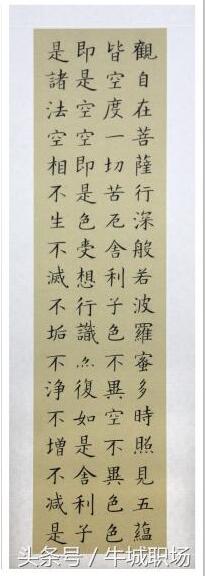 觀自在菩薩行深般若波羅蜜多時照見五蘊
皆空度一切苦厄舍利子色不異空不異色色
即是空空即是色受想行識亦復如是舍利子
是諸法空相不生不滅不垢不淨不增不減是
头条号/牛城职场